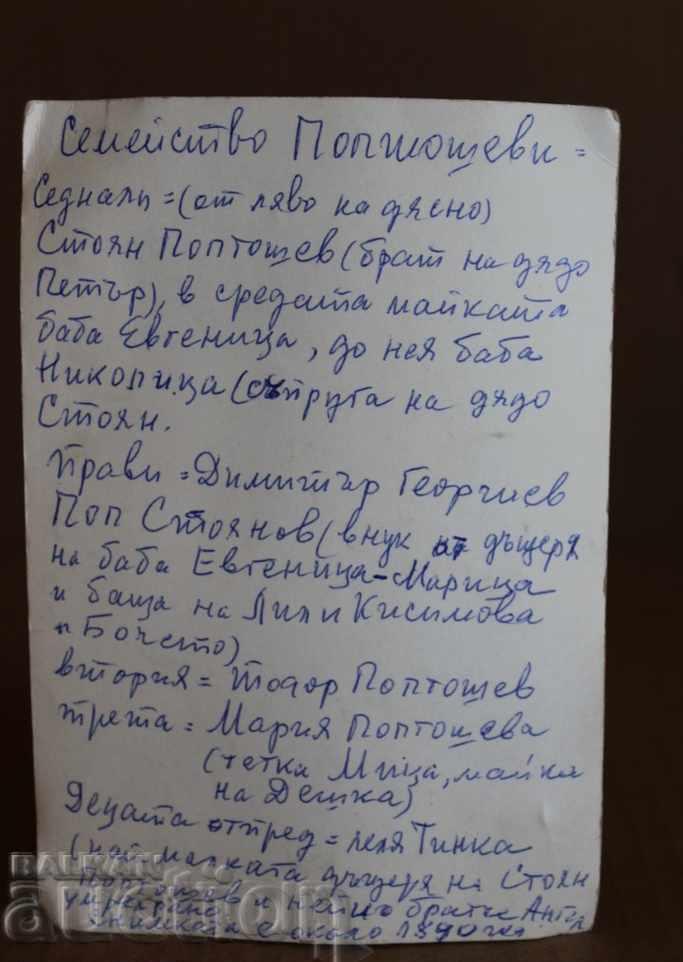 Семейство Поптошеви =
Седнали = (от ляво на дясно)
Стоян Поптошев (брат на дядо
Петър), в средата майката
баба Евгеница, до нея баба
Николица (съпруга на дядо
Стоян.
Прави = Димитър Георгиев
Поп Стоянов (внук от дъщеря
на баба Евгеница - Марица
и баща на Лили Кисимова
и Бочето)
втория = Тодор Поптошев
трета = Мария Поптошева
(тетка Мица, майка
на Дешка)
Децата отпред = леля Тинка
(най малката дъщеря на Стоян
Поптошов и нейно братче Ангел
снимката е около 1890 год
BALKAN
auction